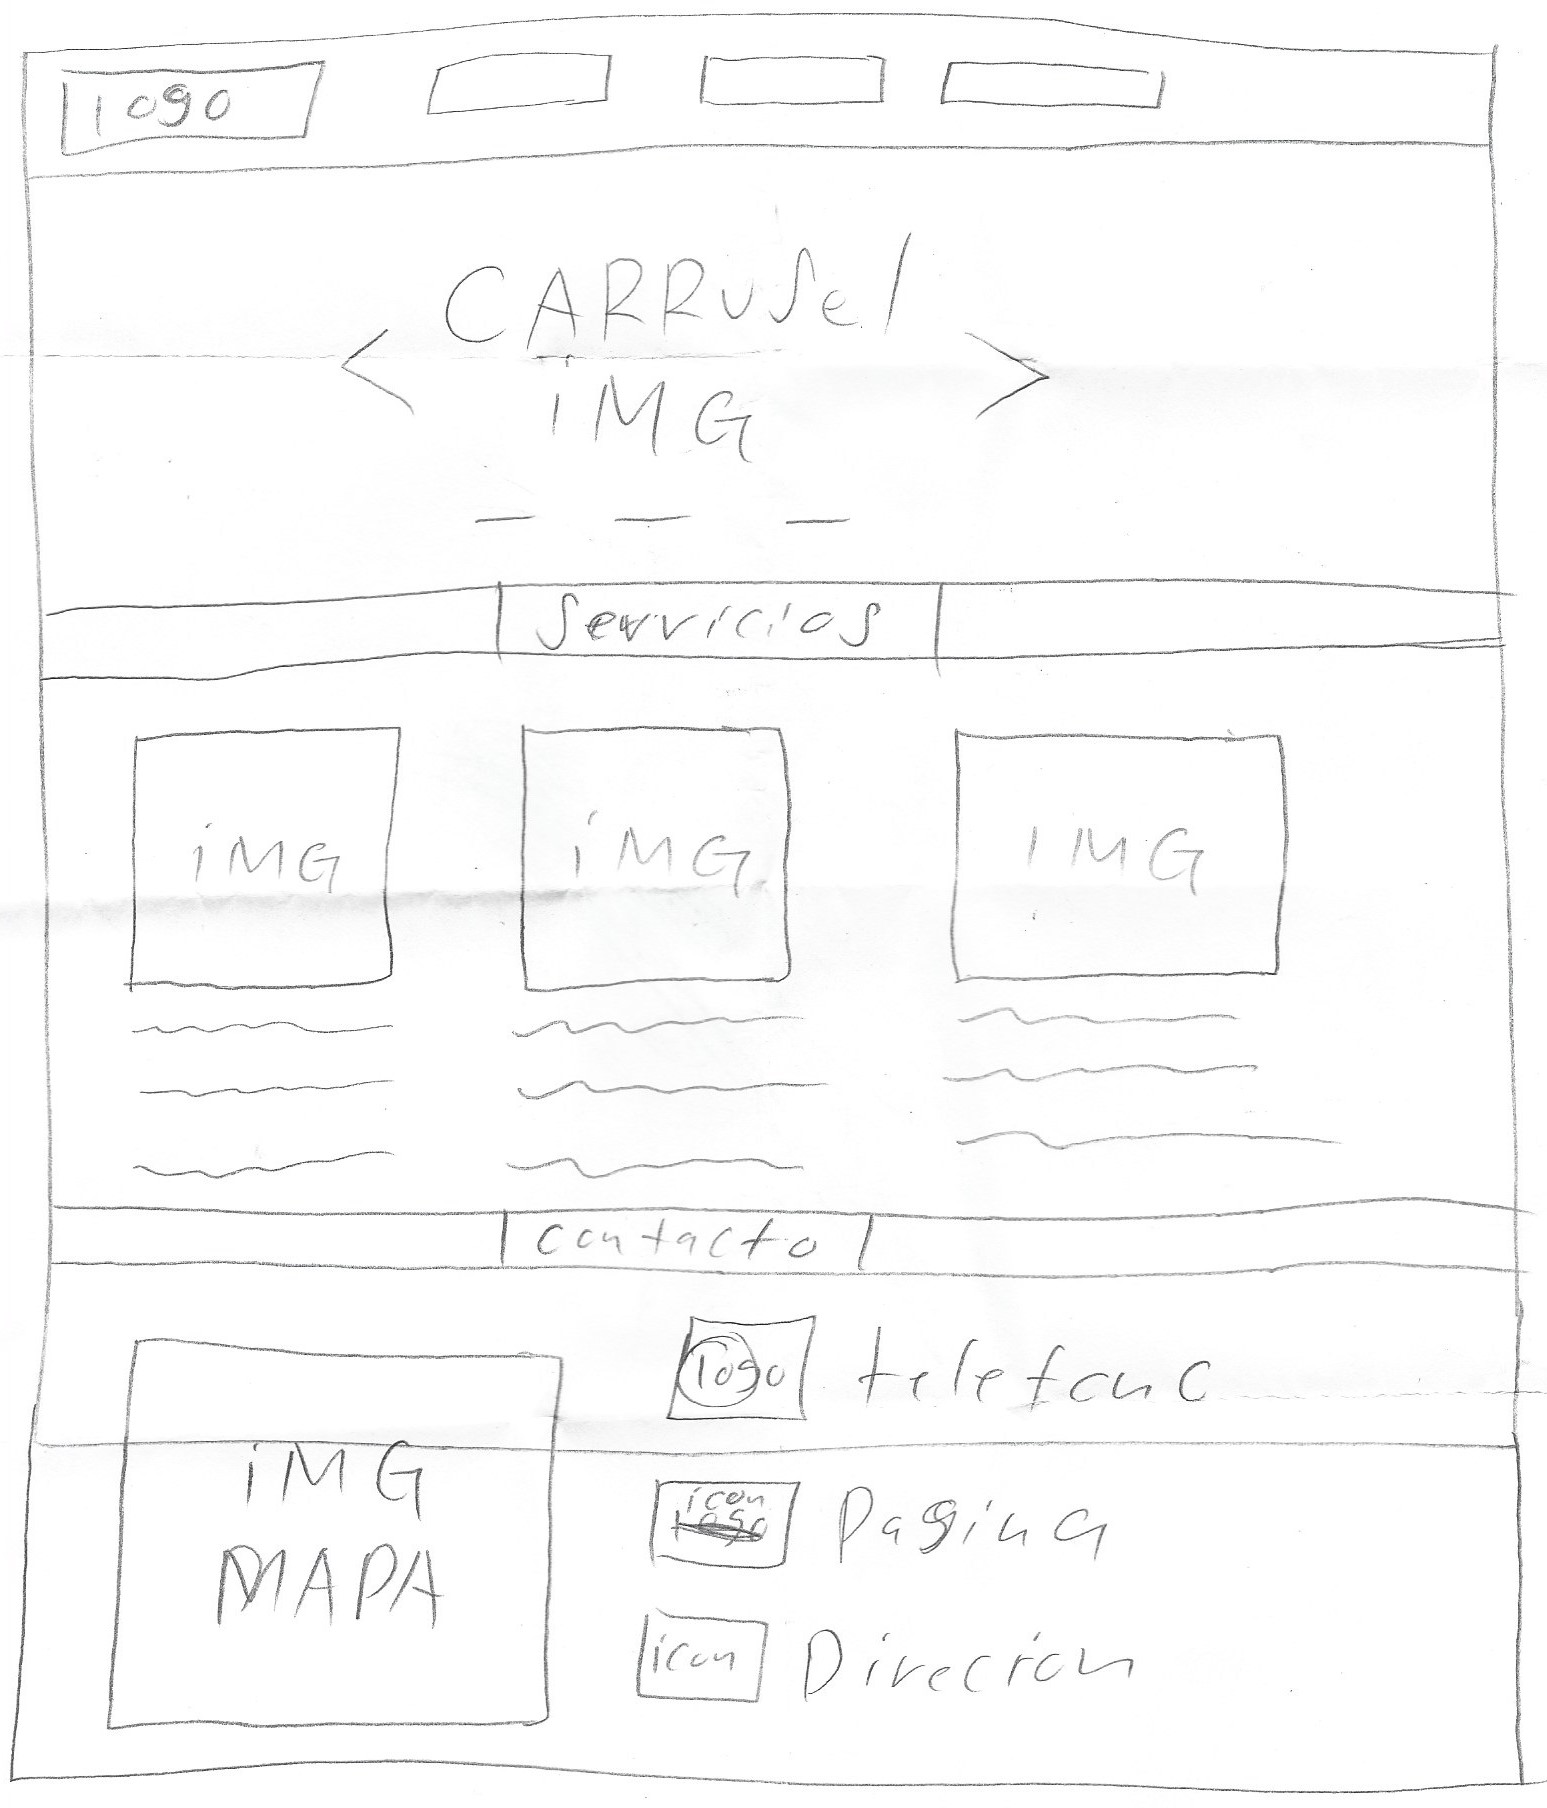 logo
CARRUSel
iMG
Servicios
iMG iMG IMG
contacto
logo telefono
iMG
MAPA
icon
logo
Pagina
icon Direcion